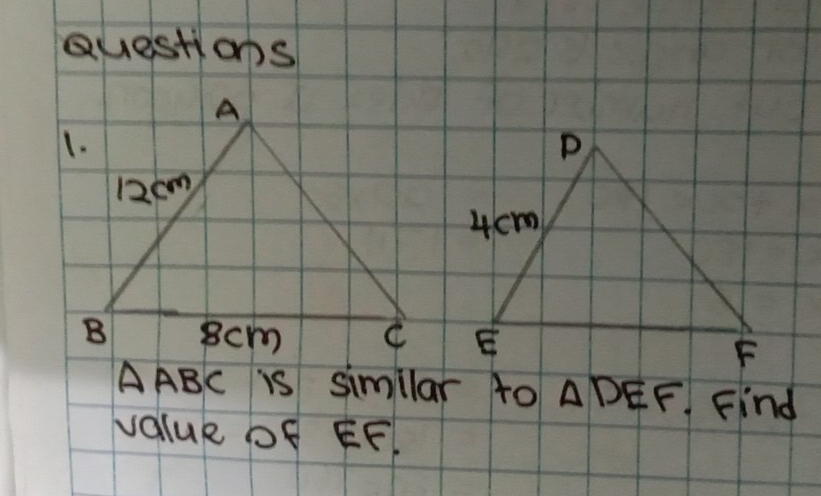 Questions
A
1.
D
12cm
4cm
B 8cm C E F
∆ABC is similar to ∆DEF. Find
value of EF.